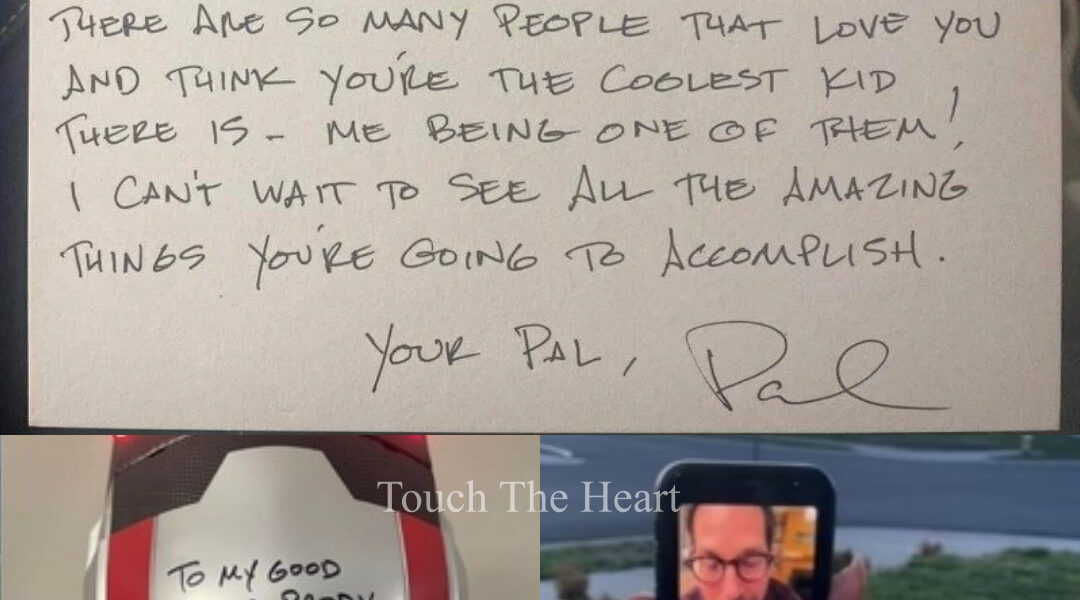 THERE ARE SO MANY PEOPLE THAT LOVE YOU
AND THINK YOU'RE THE COOLEST KID
THERE IS - ME BEING ONE OF THEM!
I CAN'T WAIT TO SEE ALL THE AMAZING
THINGS YOU'RE GOING TO ACCOMPLISH.
YOUR PAL, Pal
Touch The Heart
TO MY GOOD